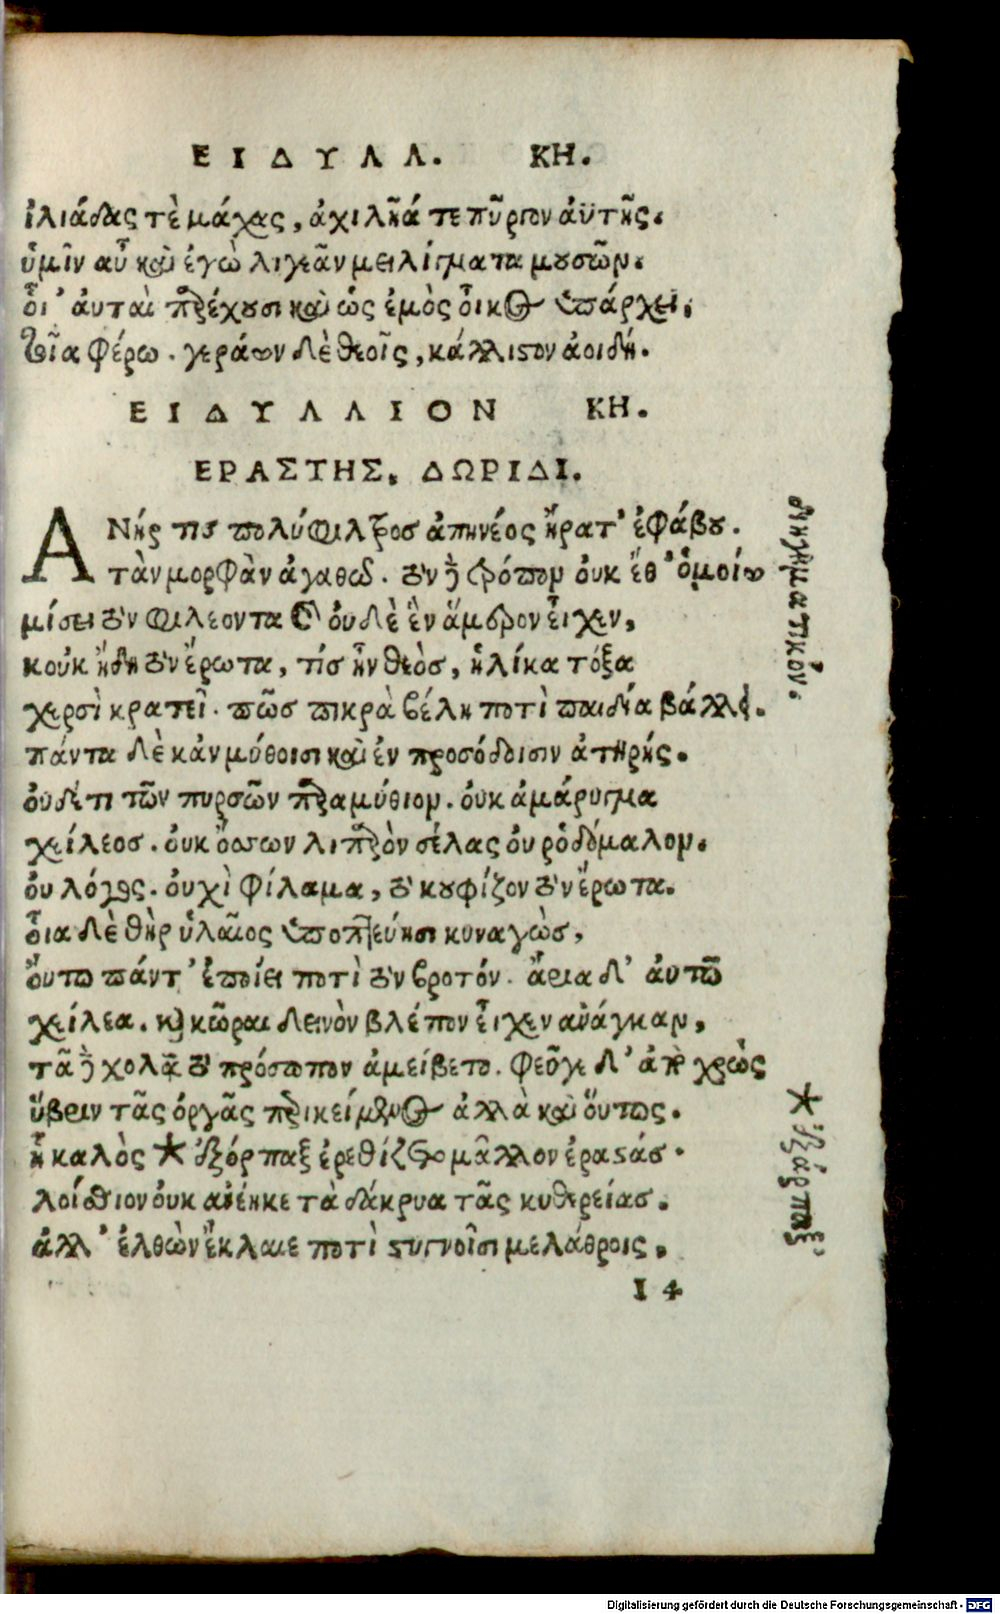 ΕΙΔΥΛΛ. ΚΗ.
ἰλιάδας τὲ μάχας, ἀχιλῆά τε πῦργον ἀϋτῆς.
ὑμῖν αὖ καὶ ἐγὼ λιγεᾶν μειλίγματα μουσῶν.
οἷ' ἀυταὶ παρέχουσι καὶ ὡς ἐμὸς οἶκος ὑπάρχει,
τοῖα φέρω. γεράων δὲ θεοῖς, κάλλιστον ἀοιδή.
ΕΙΔΥΛΛΙΟΝ ΚΗ.
ΕΡΑΣΤΗΣ, ΔΩΡΙΔΙ.
ΑΝήρ τις πολύφιλτρος ἀπηνέος ἤρατ' ἐφάβου.
τὰν μορφὰν ἀγαθῶ. τὸν δὲ τρόπον οὐκ ἔθ' ὁμοίω
μίσει τὸν φιλέοντα καὶ οὐδὲ ἓν ἅμερον εἶχεν,
κοὐκ ᾔδη τὸν ἔρωτα, τίς ἦν θεὸς, ἡλίκα τόξα
χερσὶ κρατεῖ. πῶς πικρὰ βέλη ποτὶ παιδία βάλλει.
πάντα δὲ κἀν μύθοισι καὶ ἐν προσόδοισιν ἀτηρής.
οὐδέ τι τῶν πυρσῶν παραμύθιον. οὐκ ἀμάρυγμα
χείλεος. οὐκ ὄσσων λιπαρὸν σέλας οὐ ῥοδόμαλον.
οὐ λόγος. οὐχὶ φίλαμα, τὸ κουφίζον τὸν ἔρωτα.
οἷα δὲ θὴρ ὑλαῖος ὑποπτεύησι κυναγὼς,
οὕτω πάντ' ἐποίει ποτὶ τὸν βροτόν. ἄγρια δ' ἀυτῶ
χείλεα. καὶ κῶραι δεινὸν βλέπον εἶχεν ἀνάγκαν,
τᾶ δὲ χολᾷ τὸ πρόσωπον ἀμείβετο. φεῦγε δ' ἀπὸ χρὼς
ὕβριν τᾶς ὀργᾶς περικείμενος ἀλλὰ καὶ οὕτως.
ἦ καλὸς * ἐξόρπαξ ἐρεθίζετο μᾶλλον ἐραστάς.
λοίσθιον οὐκ ἀνένηκε τὰ δάκρυα τᾶς κυθερείας.
ἀλλ' ἐλθὼν ἔκλαιε ποτὶ στυγνοῖσι μελάθροις,
I 4
διηγηματικόν.
* ἐξάρπαξ
Digitalisierung gefördert durch die Deutsche Forschungsgemeinschaft - DFG